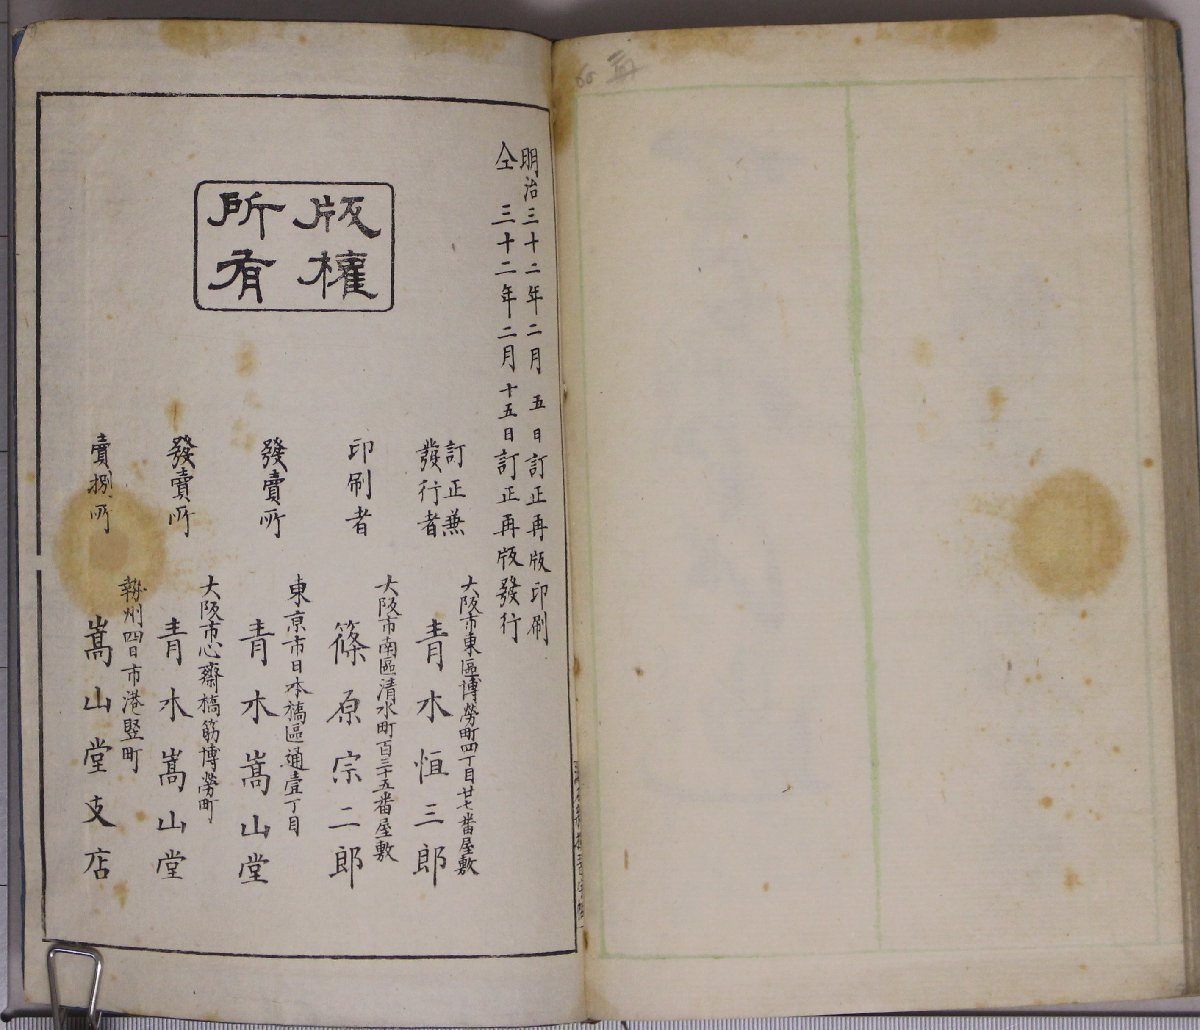 明治三十二年二月五日訂正再版印刷
仝三十二年二月十五日訂正再版發行
版權
所有
訂正兼
發行者
大阪市東區博勞町四丁目廿七番屋敷
青木恒三郎
印刷者
大阪市南區清水町百三十五番屋敷
篠原宗二郎
發賣所
東京市日本橋區通壹丁目
青木嵩山堂
發賣所
大阪市心齋橋筋博勞町
青木嵩山堂
賣捌所
勢州四日市港竪町
嵩山堂支店